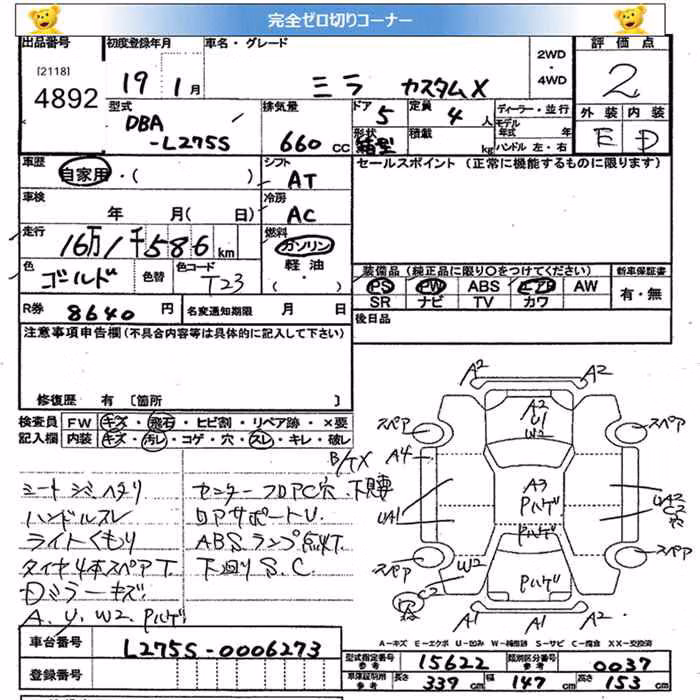 完全ゼロ切りコーナー
出品番号 初度登録年月 車名・グレード 評価点
[2118]
4892
19 年 1 月
ミラ カスタムX
2WD
・
4WD
2
型式 排気量 ドア 5 定員 4 人 ディーラー・並行
外装 内装
DBA
-L275S
660 CC
形状 箱型 積載 kg
モデル年式 年
ハンドル 左・右
E D
車歴 シフト セールスポイント (正常に機能するものに限ります)
自家用・( )
AT
車検 冷房
年 月( 日)
AC
走行 燃料
16万1千586 km
ガソリン
軽油
( ・ )
色 色替 色コード
ゴールド T23
装備品 (純正品に限り○をつけてください) 新車保証書
PS PW ABS エアB AW
有・無
SR ナビ TV カワ
R券 8640 円 名変通知期限 月 日
後日品
注意事項申告欄 (不具合内容等は具体的に記入して下さい)
修復歴 有 〔箇所 〕
検査員 FW キズ・飛石・ヒビ割・リペア跡・×要
記入欄 内装 キズ・汚レ・コゲ・穴・スレ・キレ・破レ
シートシミヘタリ
ハンドルスレ
ライトくもり
タイヤ4本スペアT.
Dミラーキズ
A. U. W2. Pハゲ
センターフロアC穴
ロアサポートU.
ABSランプ点灯.
下廻りS.C.
A2
A2
スペア
スペア
A2
U1
W2
A4
A3
Pハゲ
Pハゲ
UA1
UA2
C2
スペア
スペア
W2
C2
Pハゲ
A1
A1
A-キズ E-エクボ U-凹み W-補修跡 S-サビ C-腐食 XX-交換済
車台番号 L275S-0006273
型式指定番号 参考 15622 類別区分番号 参考 0037
登録番号
車庫証明用 参考 長さ 339 cm 幅 147 cm 高さ 153 cm